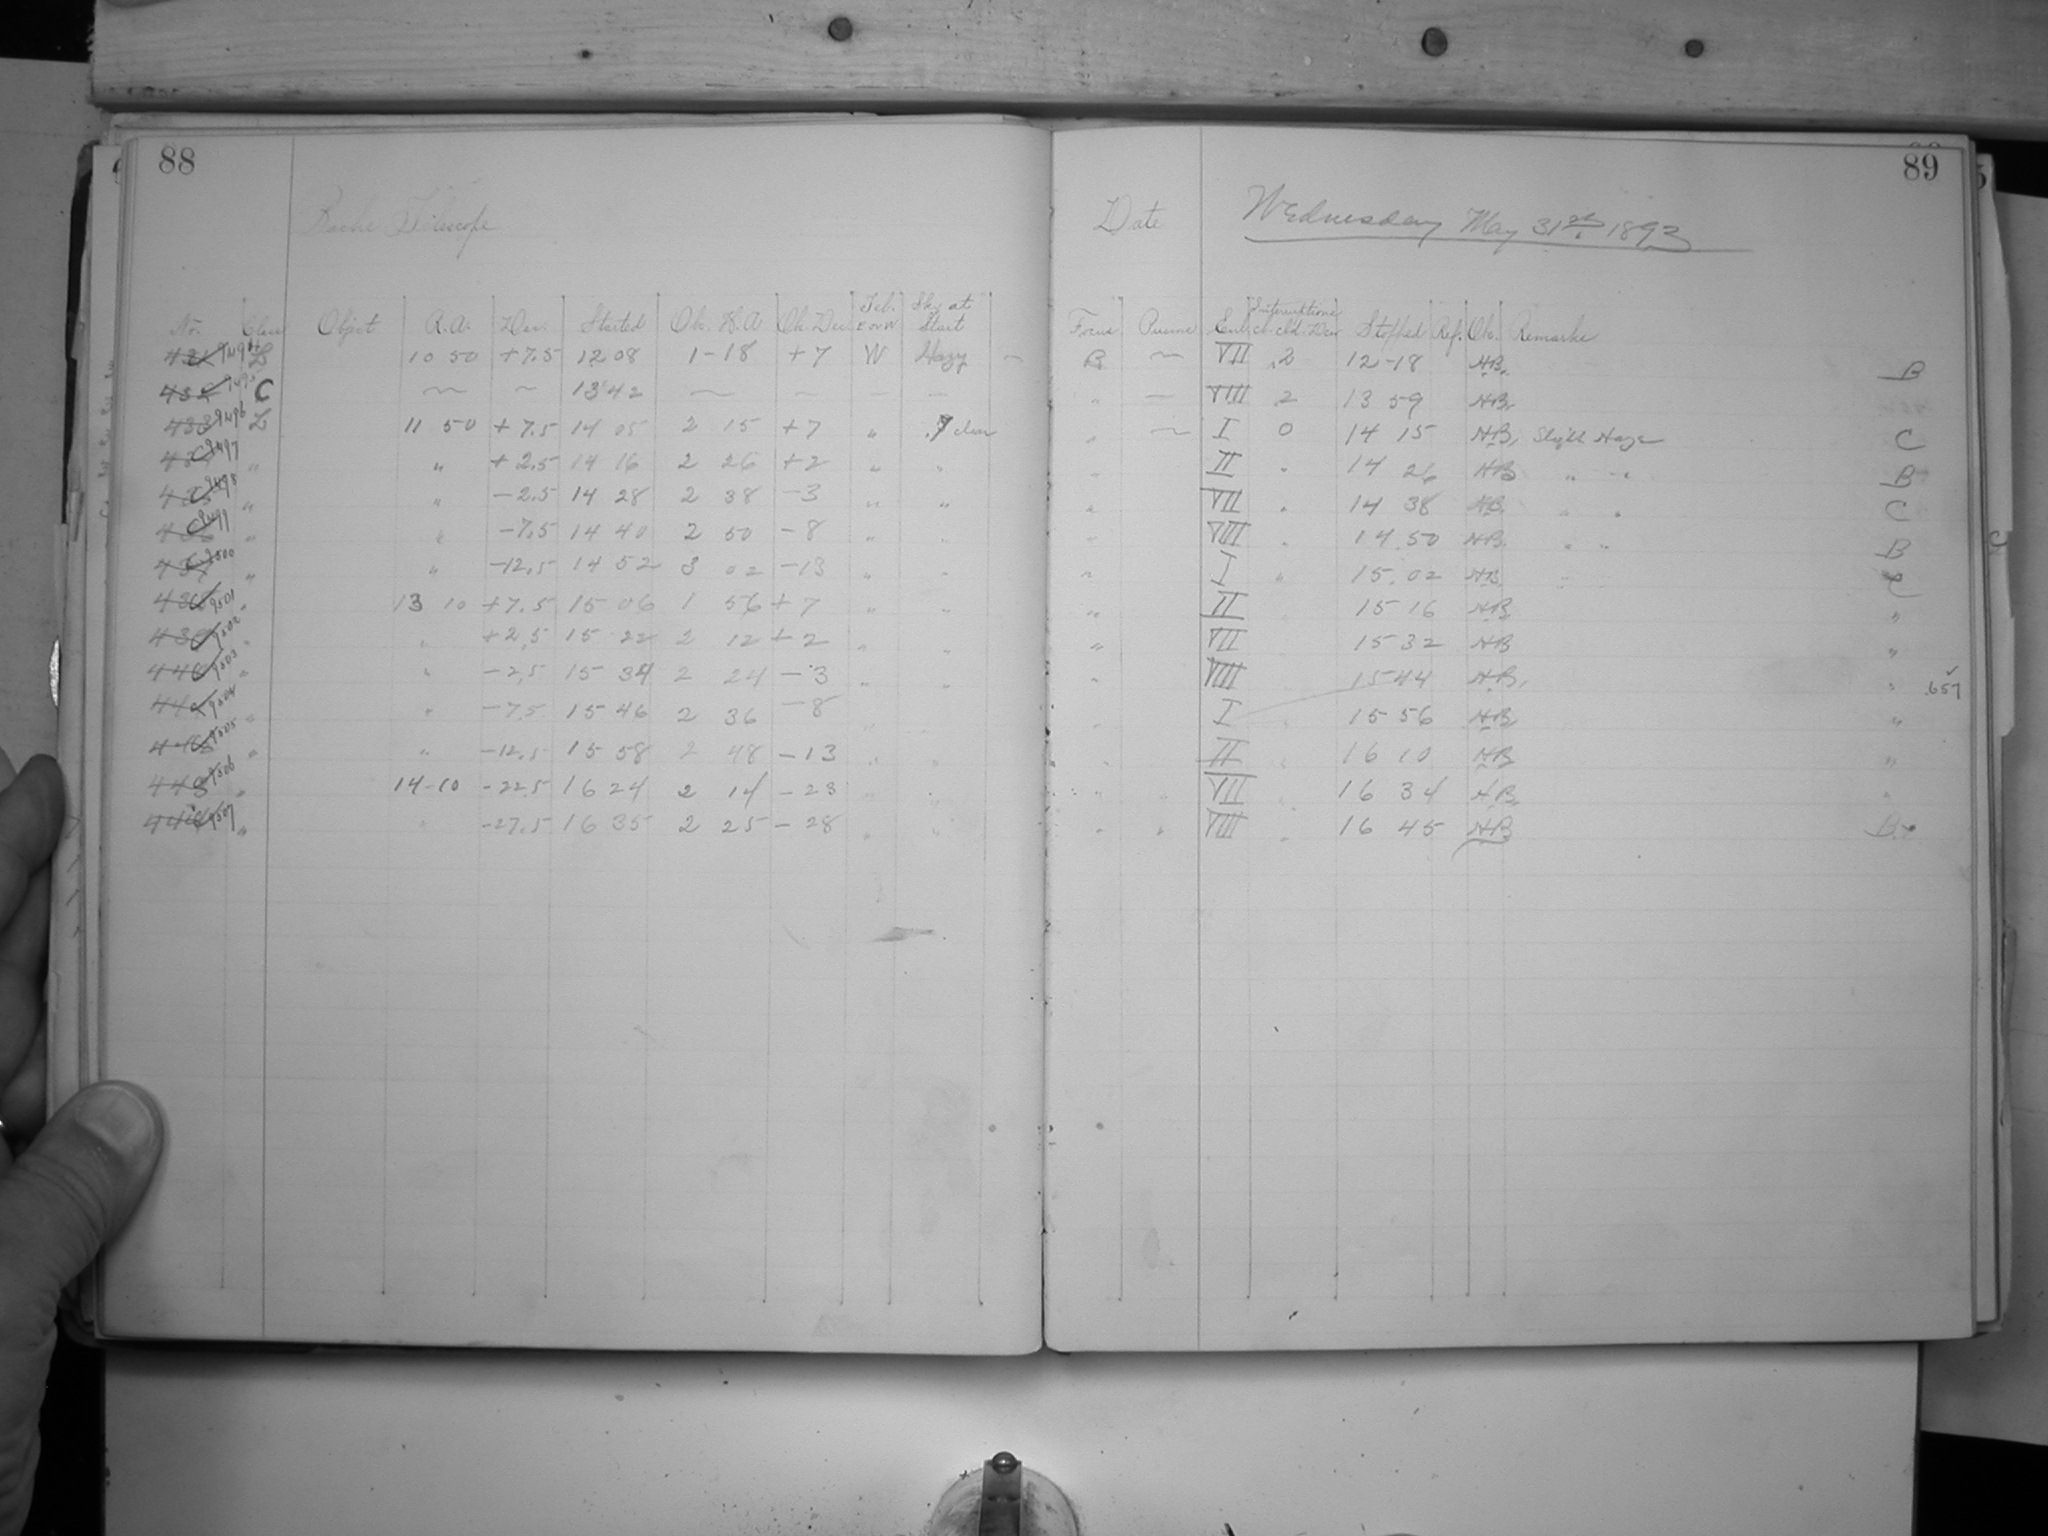 88
Bache Telescope
No. Class Object R.A. Dec. Started Ob. H.A Ob. Dec. Tel. E or W Sky at Start
431 9494 L 10 50 +7.5 12 08 1-18 +7 W Hazy ~
432 9495 C ~ ~ 13 42 ~ ~ — —
433 9496 L 11 50 +7.5 14 05 2 15 +7 " clear
9497 " " +2.5 14 16 2 26 +2 " "
9498 " " -2.5 14 28 2 38 -3 " "
9499 " " -7.5 14 40 2 50 -8 " "
9500 " " -12.5 14 52 3 02 -13 " "
9501 " 13 10 +7.5 15 06 1 56 +7 " "
9502 " " +2.5 15 22 2 12 +2 " "
9503 " " -2.5 15 34 2 24 -3 " "
9504 " " -7.5 15 46 2 36 -8
9505 " " -12.5 15 58 2 48 -13 " "
9506 " 14-10 -22.5 16 24 2 14 -23 " "
9507 " " -27.5 16 35 2 25 -28 " "
89
Date Wednesday May 31st. 1893
Focus Encl. Interruptions cl. cld. Dew Stopped Ref. Ob. Remarks
B ~ VII 2 12-18 H.B. B
" — VIII 2 13 59 H.B.
" ~ I 0 14 15 H.B. Slight Haze C
" II " 14 26 H.B " " B
" VII " 14 38 H.B. " " C
" VIII " 14.50 H.B. " " B
" I " 15.02 H.B. " " C
" II 15 16 H.B "
" VII 15 32 H.B "
" VIII 15 44 H.B. " .657
" I " 15 56 H.B "
" II " 16 10 H.B "
" " VII " 16 34 H.B. "
" " VIII " 16 45 H.B